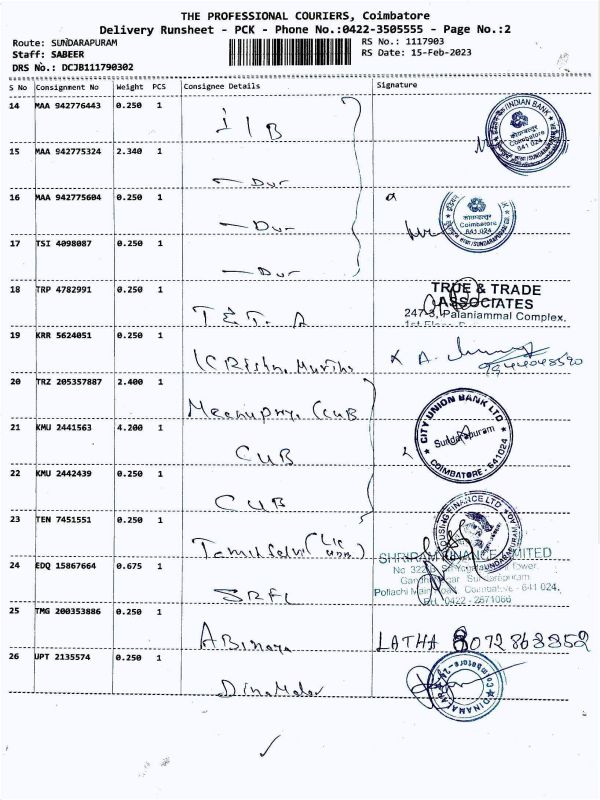 THE PROFESSIONAL COURIERS, Coimbatore
Delivery Runsheet - PCK - Phone No.:0422-3505555 - Page No.:2
Route: SUNDARAPURAM
RS No.: 1117903
Staff: SABEER
RS Date: 15-Feb-2023
DRS No.: DCJB111790302
S No Consignment No Weight PCS Consignee Details Signature
14 MAA 942776443 0.250 1
IIB
INDIAN BANK
Coimbatore
641 024
SUNDARAPURAM
15 MAA 942775324 2.340 1
16 MAA 942775604 0.250 1
Coimbatore
641 024
SUNDARAPURAM
17 TSI 4098087 0.250 1
18 TRP 4782991 0.250 1
T & T. A
TRUE & TRADE
ASSOCIATES
247-3, Palaniammal Complex,
19 KRR 5624051 0.250 1
20 TRZ 205357887 2.400 1
CUB
21 KMU 2441563 4.200 1
CUB
CITY UNION BANK LTD
Sundarapuram
COIMBATORE - 641024
22 KMU 2442439 0.250 1
CUB
23 TEN 7451551 0.250 1
Tamilselvi (LIC
HOUSING FINANCE LTD
SHRIRAM FINANCE LIMITED
24 EDQ 15867664 0.675 1
SRFL
Sundarapuram
Pollachi Main Road, Coimbatore - 641 024.
25 TMG 200353886 0.250 1
Abinaya
LATHA 8072863352
26 UPT 2135574 0.250 1
Dinamalar
DINAMALAR
Coimbatore